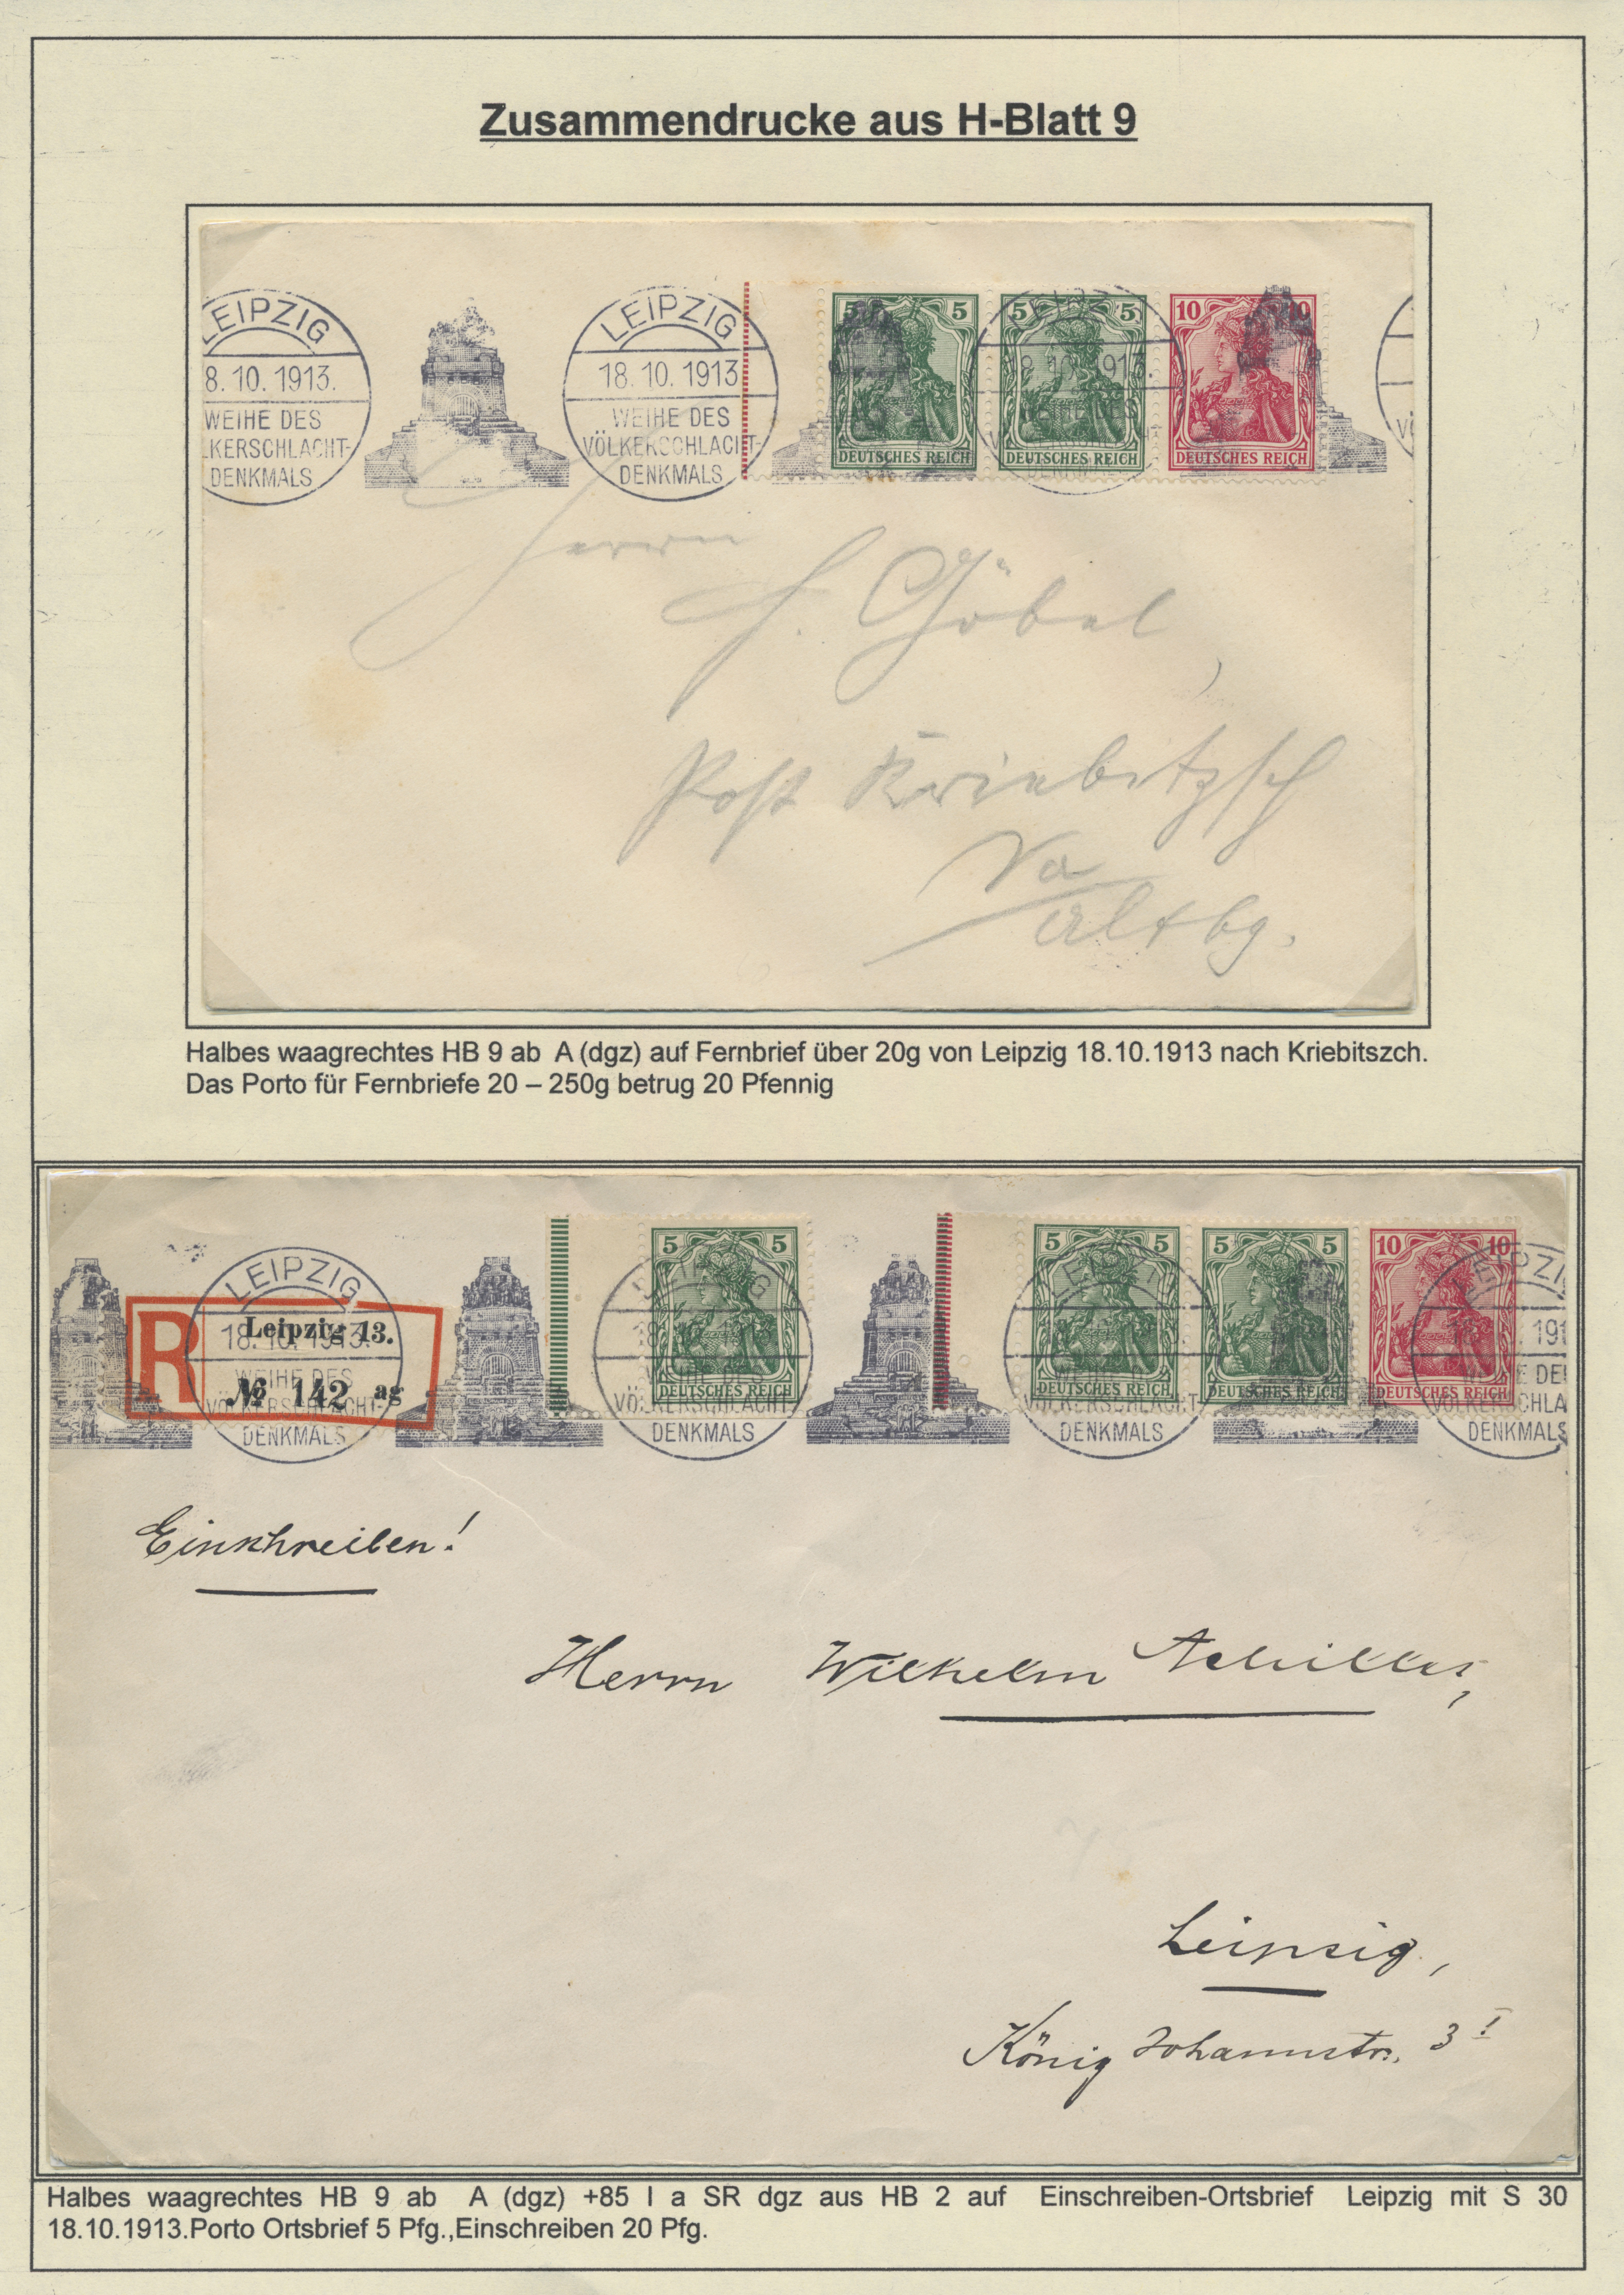 Zusammendrucke aus H-Blatt 9
LEIPZIG LEIPZIG 5 5 5 5 10 10
8. 10. 1913. 18. 10. 1913
WEIHE DES WEIHE DES
LKERSCHLACHT- VÖLKERSCHLACHT-
DENKMALS DENKMALS
DEUTSCHES REICH DEUTSCHES REICH DEUTSCHES REICH
Herrn
H. Göbel,
Post Kriebitzsch
Altbg.
Halbes waagrechtes HB 9 ab A (dgz) auf Fernbrief über 20g von Leipzig 18.10.1913 nach Kriebitszch.
Das Porto für Fernbriefe 20 – 250g betrug 20 Pfennig
5 5 5 5 5 5 10 10
LEIPZIG LEIPZIG
R Leipzig 13.
18. 10. 1913.
WEIHE DES
№ 142 ag
VÖLKERSCHLACHT- VÖLKERSCHLACHT- VÖLKERSCHLACHT- VÖLKERSCHLA
DENKMALS DENKMALS DENKMALS DENKMALS
DEUTSCHES REICH DEUTSCHES REICH DEUTSCHES REICH DEUTSCHES REICH
Einschreiben!
Herrn Wilhelm Achilles,
Leipzig,
König Johannstr. 3 I
Halbes waagrechtes HB 9 ab A (dgz) +85 I a SR dgz aus HB 2 auf Einschreiben-Ortsbrief Leipzig mit S 30
18.10.1913.Porto Ortsbrief 5 Pfg.,Einschreiben 20 Pfg.